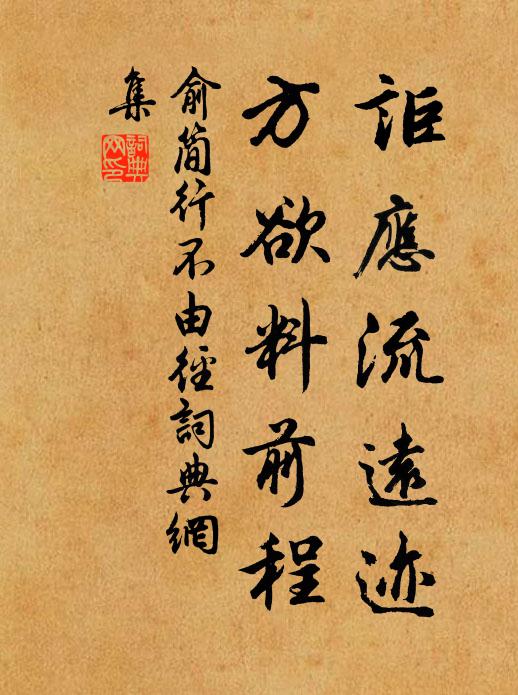 詎應流遠迹
方欲料前程
俞簡行不由徑詞典網
集
詞典網印